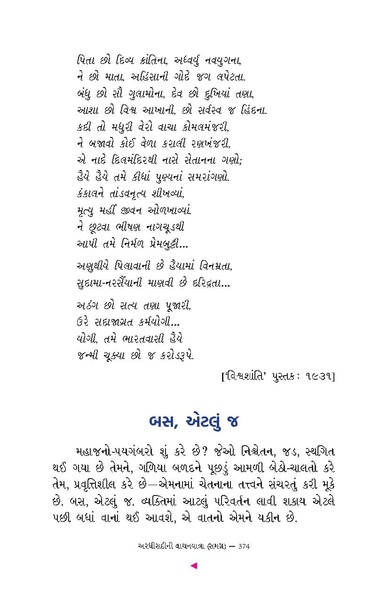 પિતા છો દિવ્ય ક્રાંતિના, અધ્વર્યુ નવયુગના,
ને છો માતા, અહિંસાની ગોદે જગ લપેટતા.
બંધુ છો સૌ ગુલામોના, દેવ છો દુખિયાં તણા,
આશા છો વિશ્વ આખાની, છો સર્વસ્વ જ હિંદના.
કદી તો મધુરી વેરો વાચા કોમલમંજરી,
ને બજાવો કોઈ વેળા કરાલી રણખંજરી,
એ નાદે દિલમંદિરથી નાસે સેતાનના ગણો;
હૈયે હૈયે તમે કીધાં પુણ્યનાં સમરાંગણો.
કંકાલને તાંડવનૃત્ય શીખવ્યાં,
મૃત્યુ મહીં જીવન ઓળખાવ્યાં.
ને છૂટવા ભીષણ નાગચૂડથી
આપી તમે નિર્મળ પ્રેમબુટ્ટી...
અણુથીયે પિલાવાની છે હૈયામાં વિનમ્રતા,
સુદામા-નરસૈંયાની માણવી છે દરિદ્રતા...
અઠંગ છો સત્ય તણા પૂજારી,
ઉરે સદાજાગ્રત કર્મયોગી...
યોગી, તમે ભારતવાસી હૈયે
જન્મી ચૂક્યા છો જ કરોડરૂપે.
[‘વિશ્વશાંતિ’ પુસ્તક: ૧૯૩૧]
બસ, એટલું જ
મહાજનો-પયગંબરો શું કરે છે? જેઓ નિશ્ચેતન, જડ, સ્થગિત
થઈ ગયા છે તેમને, ગળિયા બળદને પૂછડું આમળી બેઠો-ચાલતો કરે
તેમ, પ્રવૃત્તિશીલ કરે છે—એમનામાં ચેતનાના તત્ત્વને સંચરતું કરી મૂકે
છે. બસ, એટલું જ. વ્યક્તિમાં આટલું પરિવર્તન લાવી શકાય એટલે
પછી બધાં વાનાં થઈ આવશે, એ વાતનો એમને યકીન છે.
અરધીસદીની વાચનયાત્રા (સમગ્ર) — 374